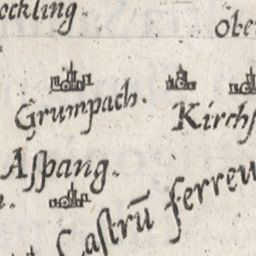 ockling.
obe
Grumpach.
Kirchs
Aspang.
Castrū ferreu